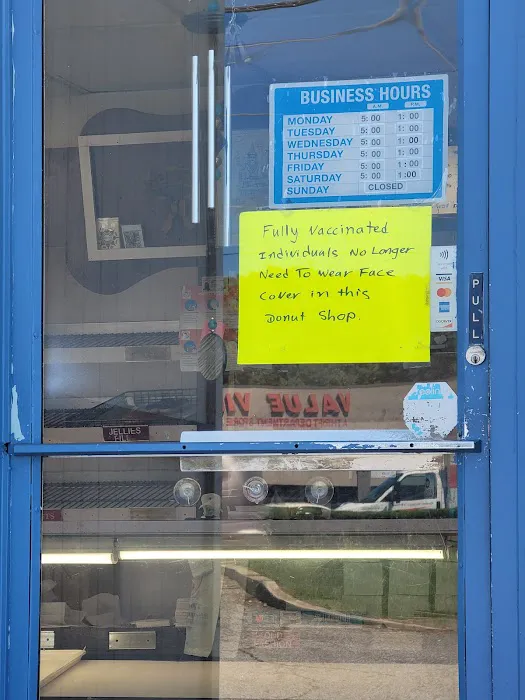 BUSINESS HOURS
A.M. P.M.
MONDAY 5:00 1:00
TUESDAY 5:00 1:00
WEDNESDAY 5:00 1:00
THURSDAY 5:00 1:00
FRIDAY 5:00 1:00
SATURDAY 5:00 1:00
SUNDAY CLOSED
Fully Vaccinated
Individuals No Longer
Need To Wear Face
Cover in this
Donut Shop.
VISA
DISCOVER
PULL
VALUE
A THRIFT DEPARTMENT STORE
JELLIES